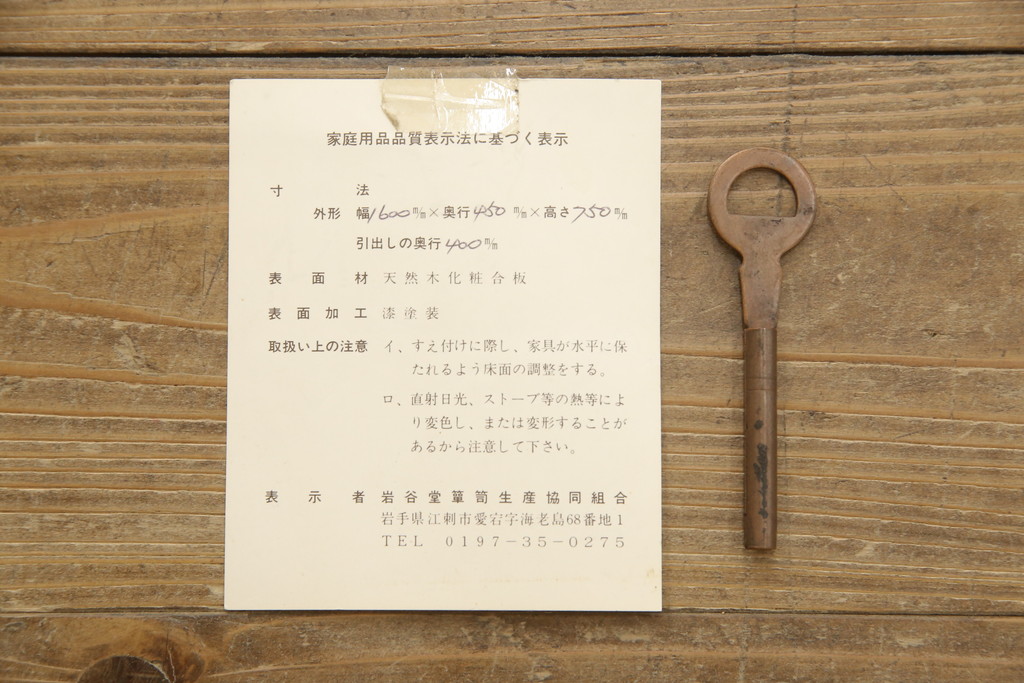 家庭用品品質表示法に基づく表示
寸法
外形 幅1600㎜×奥行450㎜×高さ750㎜
引出しの奥行400㎜
表面材 天然木化粧合板
表面加工 漆塗装
取扱い上の注意 イ、すえ付けに際し、家具が水平に保
たれるよう床面の調整をする。
ロ、直射日光、ストーブ等の熱等によ
り変色し、または変形することが
あるから注意して下さい。
表示者 岩谷堂簞笥生産協同組合
岩手県江刺市愛宕字海老島68番地1
TEL 0197-35-0275